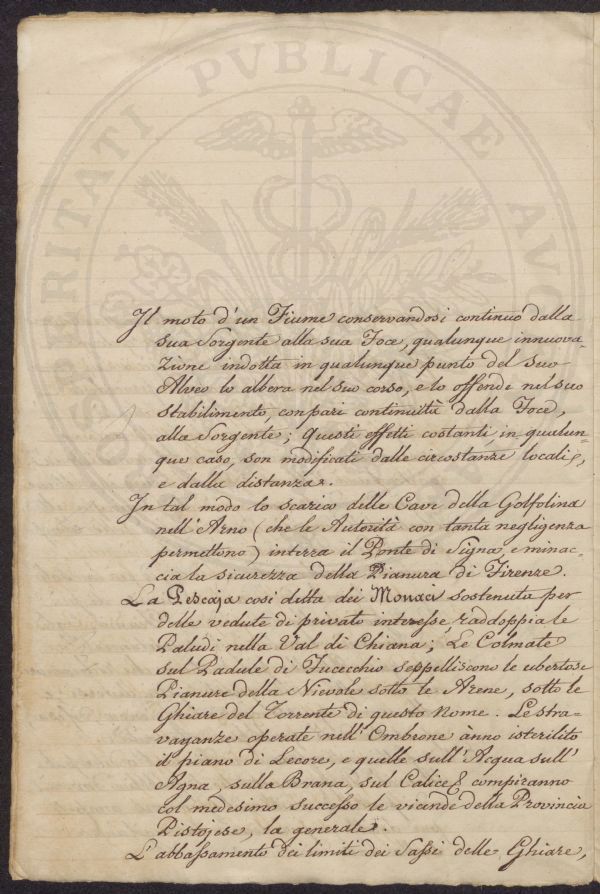 Il moto d'un Fiume conservandosi continuo dalla
sua Sorgente alla sua Foce, qualunque innuova-
zione indotta in qualunque punto del suo
Alveo lo altera nel suo corso, e lo offende nel suo
stabilimento, con pari continuittà dalla Foce,
alla Sorgente; Questi effetti costanti in qualun-
que caso, son modificati dalle circostanze locali,
e dalla distanza.
In tal modo lo scarico delle Cave della Golfolina
nell'Arno (che le Autorità con tanta negligenza
permettono) interra il Ponte di Signa, e minac-
cia la sicurezza della Pianura di Firenze.
La Pescaja così detta dei Monaci sostenuta per
delle vedute di privato interesse raddoppia le
Paludi nella Val di Chiana; Le Colmate
sul Padule di Fucecchio seppelliscono le ubertose
Pianure della Nievole sotto le Arene, sotto le
Ghiare del Torrente di questo Nome. Le stra-
vaganze operate nell'Ombrone ànno isterilito
il piano di Lecore, e quelle sull'Acqua sull'
Agna, sulla Brana, sul Calice & compiranno
col medesimo successo le vicende della Provincia
Pistojese, la generale.
L'abbassamento dei limiti dei Sassi delle Ghiare,
PVBLICAE